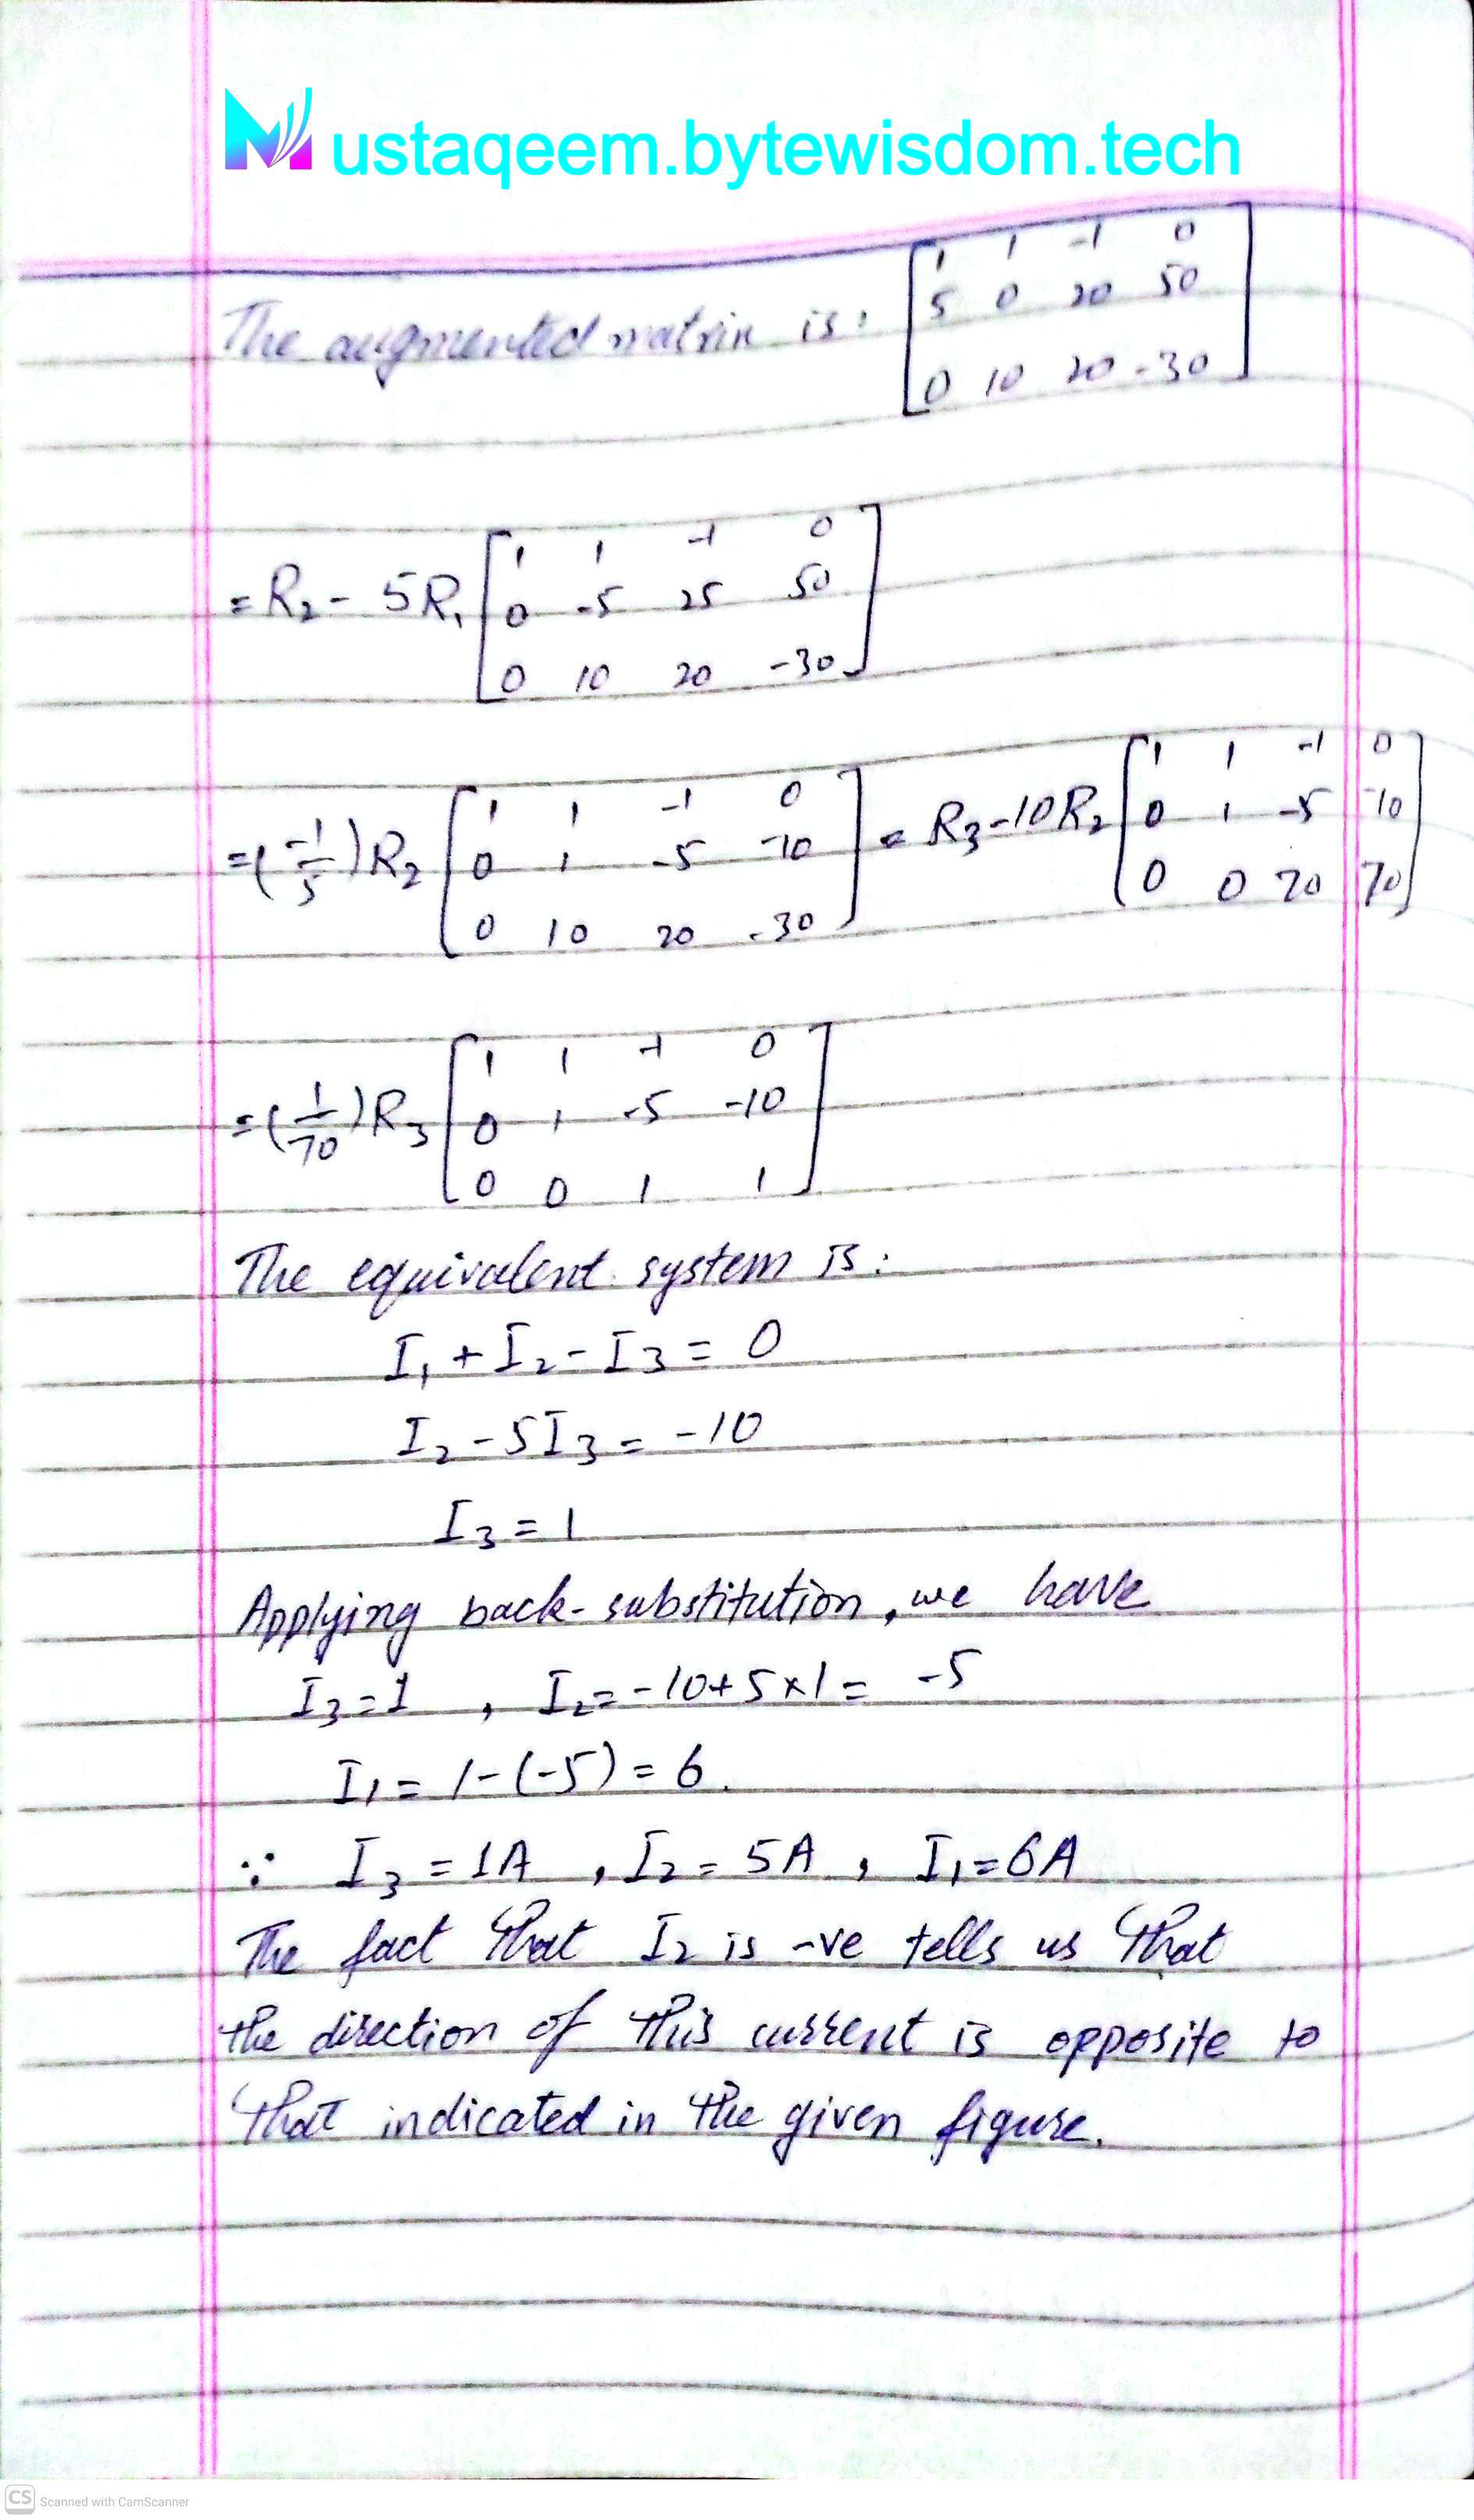 Mustaqeem.bytewisdom.tech
The augmented matrix is: [1 1 -1 0
5 0 20 50
0 10 20 -30]
= R₂ - 5R₁ [1 1 -1 0
0 -5 25 50
0 10 20 -30]
= (-1/5) R₂ [1 1 -1 0
0 1 -5 -10
0 10 20 -30] = R₃ - 10R₂ [1 1 -1 0
0 1 -5 -10
0 0 70 70]
= (1/70) R₃ [1 1 -1 0
0 1 -5 -10
0 0 1 1]
The equivalent system is:
I₁ + I₂ - I₃ = 0
I₂ - 5I₃ = -10
I₃ = 1
Applying back-substitution, we have
I₃ = 1 , I₂ = -10 + 5×1 = -5
I₁ = 1 - (-5) = 6.
∵ I₃ = 1A , I₂ = 5A , I₁ = 6A
The fact that I₂ is -ve tells us that
the direction of this current is opposite to
that indicated in the given figure.
CS Scanned with CamScanner